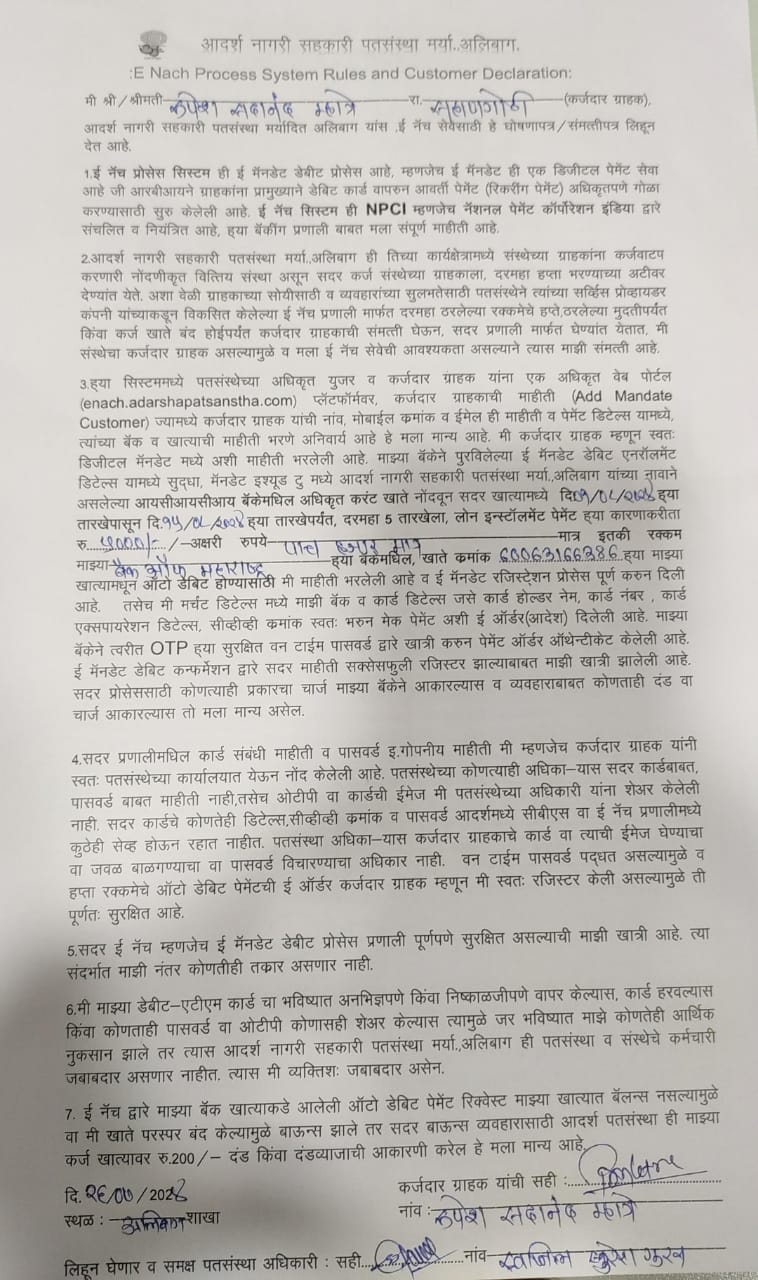 आदर्श नागरी सहकारी पतसंस्था मर्या..अलिबाग.
:E Nach Process System Rules and Customer Declaration:
मी श्री/श्रीमती रुपेश सदानंद म्हात्रे रा. सहाणगोठी (कर्जदार ग्राहक),
आदर्श नागरी सहकारी पतसंस्था मर्यादित अलिबाग यांस ,ई नॅच सेवेसाठी हे घोषणापत्र/संमत्तीपत्र लिहून
देत आहे.
1.ई नॅच प्रोसेस सिस्टम ही ई मॅनडेट डेबीट प्रोसेस आहे, म्हणजेच ई मॅनडेट ही एक डिजीटल पेमेंट सेवा
आहे जी आरबीआयने ग्राहकांना प्रामुख्याने डेबिट कार्ड वापरुन आवर्ती पेमेंट (रिकरींग पेमेंट) अधिकृतपणे गोळा
करण्यासाठी सुरु केलेली आहे. ई नॅच सिस्टम ही NPCI म्हणजेच नॅशनल पेमेंट कॉर्पोरेशन इंडिया द्वारे
संचलित व नियंत्रित आहे, ह्या बॅकींग प्रणाली बाबत मला संपूर्ण माहीती आहे.
2.आदर्श नागरी सहकारी पतसंस्था मर्या.,अलिबाग ही तिच्या कार्यक्षेत्रामध्ये संस्थेच्या ग्राहकांना कर्जवाटप
करणारी नोंदणीकृत वित्तिय संस्था असून सदर कर्ज संस्थेच्या ग्राहकाला, दरमहा हप्ता भरण्याच्या अटीवर
देण्यांत येते. अशा वेळी ग्राहकाच्या सोयीसाठी व व्यवहारांच्या सुलभतेसाठी पतसंस्थेने त्यांच्या सर्व्हिस प्रोव्हायडर
कंपनी यांच्याकडून विकसित केलेल्या ई नॅच प्रणाली मार्फत दरमहा ठरलेल्या रक्कमेचे हप्ते,ठरलेल्या मुदतीपर्यंत
किंवा कर्ज खाते बंद होईपर्यंत कर्जदार ग्राहकाची संमत्ती घेऊन, सदर प्रणाली मार्फत घेण्यांत येतात, मी
संस्थेचा कर्जदार ग्राहक असल्यामुळे व मला ई नॅच सेवेची आवश्यकता असल्याने त्यास माझी संमत्ती आहे.
3.ह्या सिस्टममध्ये पतसंस्थेच्या अधिकृत युजर व कर्जदार ग्राहक यांना एक अधिकृत वेब पोर्टल
(enach.adarshapatsanstha.com) प्लॅटफॉर्मवर, कर्जदार ग्राहकाची माहीती (Add Mandate
Customer) ज्यामध्ये कर्जदार ग्राहक यांची नांव, मोबाईल क्रमांक व ईमेल ही माहीती व पेमेंट डिटेल्स यामध्ये,
त्यांच्या बॅंक व खात्याची माहीती भरणे अनिवार्य आहे हे मला मान्य आहे. मी कर्जदार ग्राहक म्हणून स्वतः
डिजीटल मॅनडेट मध्ये अशी माहीती भरलेली आहे. माझ्या बॅकेने पुरविलेल्या ई मॅनडेट डेबिट एनरॉलमेंट
डिटेल्स यामध्ये सुद्धा, मॅनडेट इश्यूड टु मध्ये आदर्श नागरी सहकारी पतसंस्था मर्या.,अलिबाग यांच्या नावाने
असलेल्या आयसीआयसीआय बॅकेमधिल अधिकृत करंट खाते नोंदवून सदर खात्यामध्ये दि ह्या
तारखेपासून दि. ह्या तारखेपर्यंत, दरमहा 5 तारखेला, लोन इन्स्टॉलमेंट पेमेंट ह्या कारणाकरीता
रु. 5000/- /-अक्षरी रुपये पाच हजार मात्र मात्र इतकी रक्कम
माझ्या बँक ऑफ महाराष्ट्र ह्या बॅकेमधिल, खाते क्रमांक 60063166386 ह्या माझ्या
खात्यामधून ऑटो डेबिट होण्यासाठी मी माहीती भरलेली आहे व ई मॅनडेट रजिस्ट्रेशन प्रोसेस पूर्ण करुन दिली
आहे. तसेच मी मर्चंट डिटेल्स मध्ये माझी बॅक व कार्ड डिटेल्स जसे कार्ड होल्डर नेम, कार्ड नंबर , कार्ड
एक्सपायरेशन डिटेल्स, सीव्हीव्ही क्रमांक स्वतः भरुन मेक पेमेंट अशी ई ऑर्डर(आदेश) दिलेली आहे. माझ्या
बॅकेने त्वरीत OTP ह्या सुरक्षित वन टाईम पासवर्ड द्वारे खात्री करुन पेमेंट ऑर्डर ऑथेन्टीकेट केलेली आहे.
ई मॅनडेट डेबिट कन्फर्मेशन द्वारे सदर माहीती सक्सेसफुली रजिस्टर झाल्याबाबत माझी खात्री झालेली आहे.
सदर प्रोसेससाठी कोणत्याही प्रकारचा चार्ज माझ्या बॅकेने आकारल्यास व व्यवहाराबाबत कोणताही दंड वा
चार्ज आकारल्यास तो मला मान्य असेल.
4.सदर प्रणालीमधिल कार्ड संबंधी माहीती व पासवर्ड इ.गोपनीय माहीती मी म्हणजेच कर्जदार ग्राहक यांनी
स्वतः पतसंस्थेच्या कार्यालयात येऊन नोंद केलेली आहे. पतसंस्थेच्या कोणत्याही अधिका-यास सदर कार्डबाबत,
पासवर्ड बाबत माहीती नाही,तसेच ओटीपी वा कार्डची ईमेज मी पतसंस्थेच्या अधिकारी यांना शेअर केलेली
नाही. सदर कार्डचे कोणतेही डिटेल्स,सीव्हीव्ही क्रमांक व पासवर्ड आदर्शमध्ये सीबीएस वा ई नॅच प्रणालीमध्ये
कुठेही सेव्ह होऊन रहात नाहीत. पतसंस्था अधिका-यास कर्जदार ग्राहकाचे कार्ड वा त्याची ईमेज घेण्याचा
वा जवळ बाळगण्याचा वा पासवर्ड विचारण्याचा अधिकार नाही. वन टाईम पासवर्ड पद्धत असल्यामुळे व
हप्ता रक्कमेचे ऑटो डेबिट पेमेंटची ई ऑर्डर कर्जदार ग्राहक म्हणून मी स्वतः रजिस्टर केली असल्यामुळे ती
पूर्णतः सुरक्षित आहे.
5.सदर ई नॅच म्हणजेच ई मॅनडेट डेबीट प्रोसेस प्रणाली पूर्णपणे सुरक्षित असल्याची माझी खात्री आहे. त्या
संदर्भात माझी नंतर कोणतीही तक्रार असणार नाही.
6.मी माझ्या डेबीट-एटीएम कार्ड चा भविष्यात अनभिज्ञपणे किंवा निष्काळजीपणे वापर केल्यास, कार्ड हरवल्यास
किंवा कोणताही पासवर्ड वा ओटीपी कोणासही शेअर केल्यास त्यामुळे जर भविष्यात माझे कोणतेही आर्थिक
नुकसान झाले तर त्यास आदर्श नागरी सहकारी पतसंस्था मर्या.,अलिबाग ही पतसंस्था व संस्थेचे कर्मचारी
जबाबदार असणार नाहीत. त्यास मी व्यक्तिशः जबाबदार असेन.
7. ई नॅच द्वारे माझ्या बॅक खात्याकडे आलेली ऑटो डेबिट पेमेंट रिक्वेस्ट माझ्या खात्यात बॅलन्स नसल्यामुळे
वा मी खाते परस्पर बंद केल्यामुळे बाऊन्स झाले तर सदर बाऊन्स व्यवहारासाठी आदर्श पतसंस्था ही माझ्या
कर्ज खात्यावर रु.200/- दंड किंवा दंडव्याजाची आकारणी करेल हे मला मान्य आहे.
कर्जदार ग्राहक यांची सही :
दि. 26/07/2024
नांव : रुपेश सदानंद म्हात्रे
स्थळ : अलिबाग शाखा
लिहून घेणार व समक्ष पतसंस्था अधिकारी : सही नांव स्वप्निल